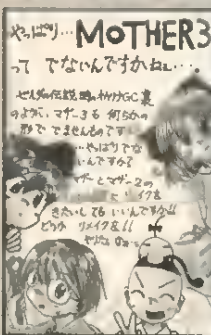 やっぱり… MOTHER3
って でないんですかねぇ…。
ゼルダの伝説 時のオカリナGC裏
のように、マザー3も 何らかの
形で でませんかものです
…やっぱりでな
いんですか?
マザーとマザー2の
イクを
きたいしても いいんですか!!
リメイクを!!